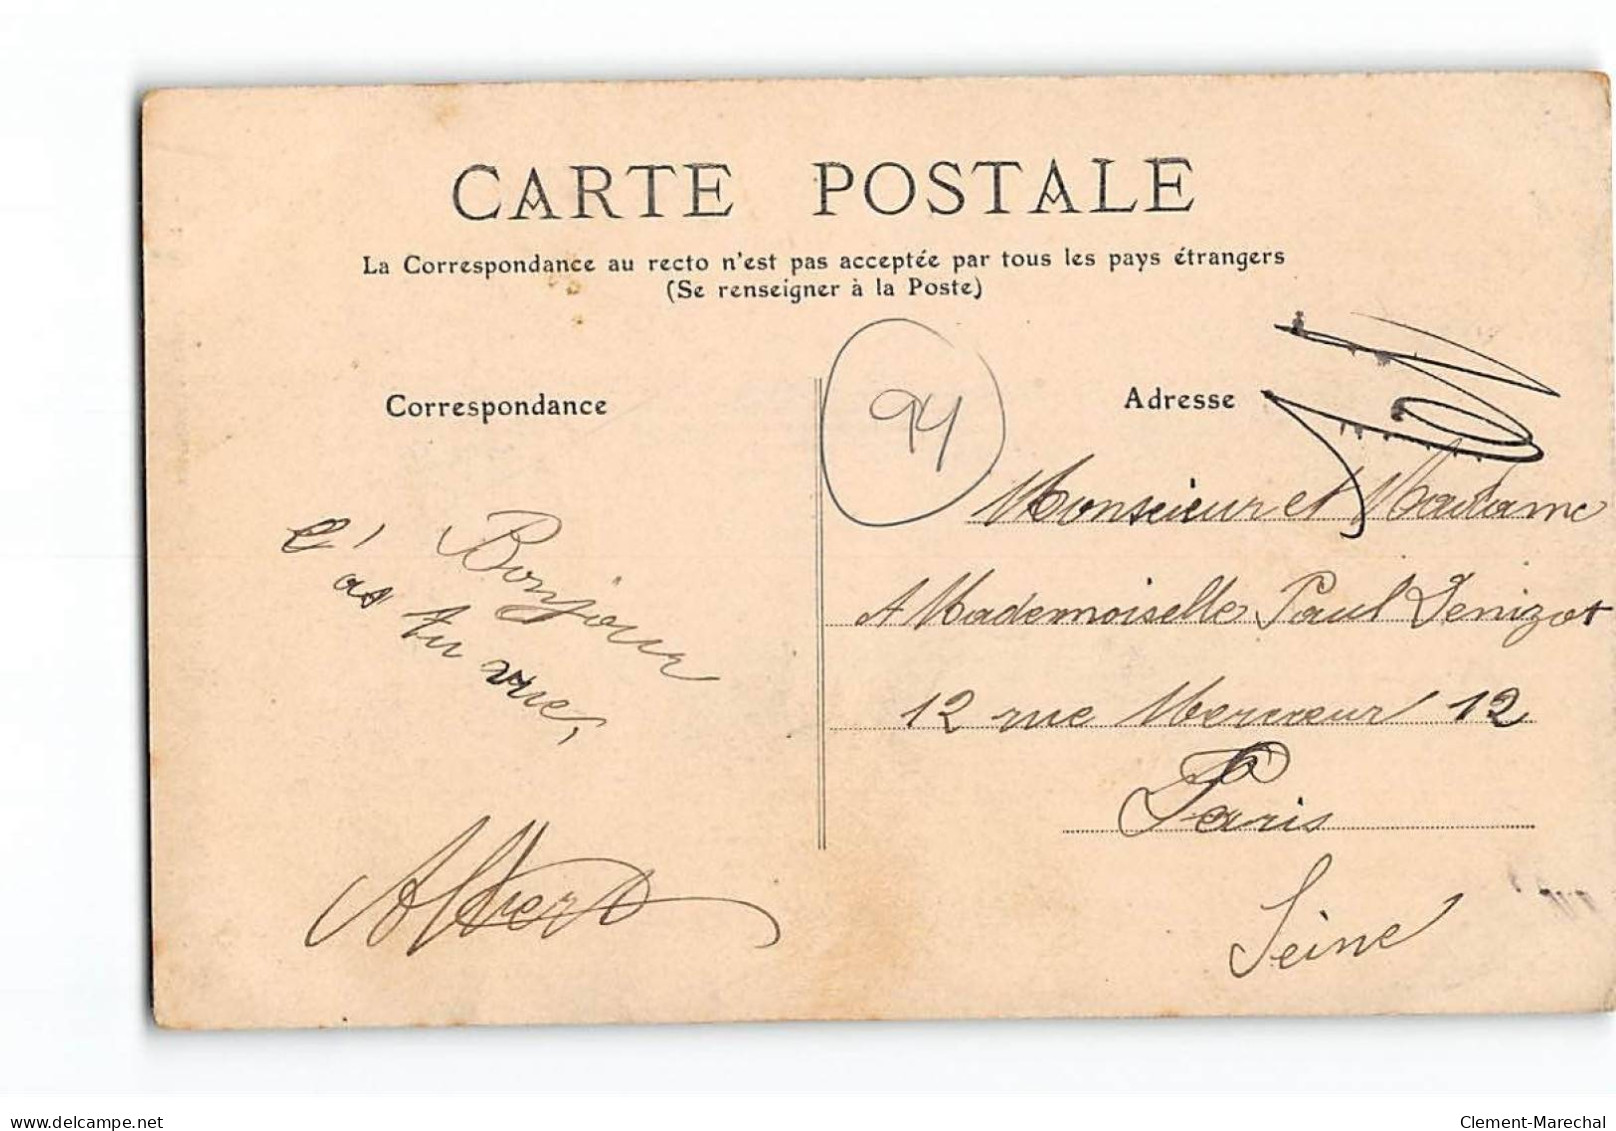 CARTE POSTALE
La Correspondance au recto n'est pas acceptée par tous les pays étrangers
(Se renseigner à la Poste)
Correspondance
Adresse
94
Bonjour
as tu vue,
Albert
Monsieur et Madame
Mademoiselle Paul Denizot
12 rue Mercœur 12
Paris
Seine
www.delcampe.net
Clement-Marechal